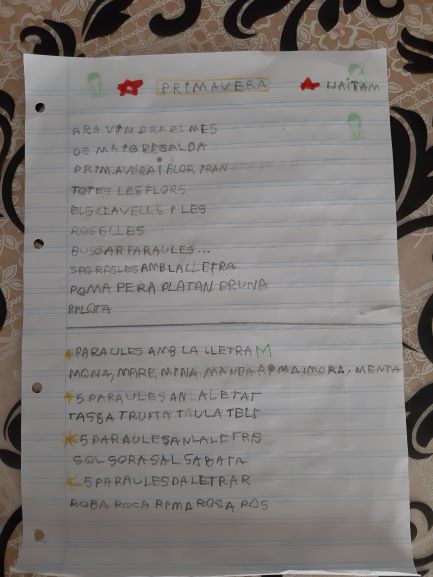 PRIMAVERA HAITAM
ARA VINDRA ELMES
DE MAIG REGALDA
PRIMAVERA I FLORIRAN
TOTES LES FLORS
ELS CLAVELLS I LES
ROSELLES
BUSCAR PARAULES...
5 PARAULES AMB LA LLETRA
POMA PERA PLATAN PRUNA
PILOTA
PARAULES AMB LA LLETRA M
MONA, MARE, MINA, MANDARINA, MORA, MENTA
5 PARAULES AN LALETAT
TASSA TRUITA TAULA TELE
5 PARAULES AN LALETRS
SOL SORA SAL SABATA
5 PARAULES DALETRAR
ROBA ROCA RIMA ROSA ROS